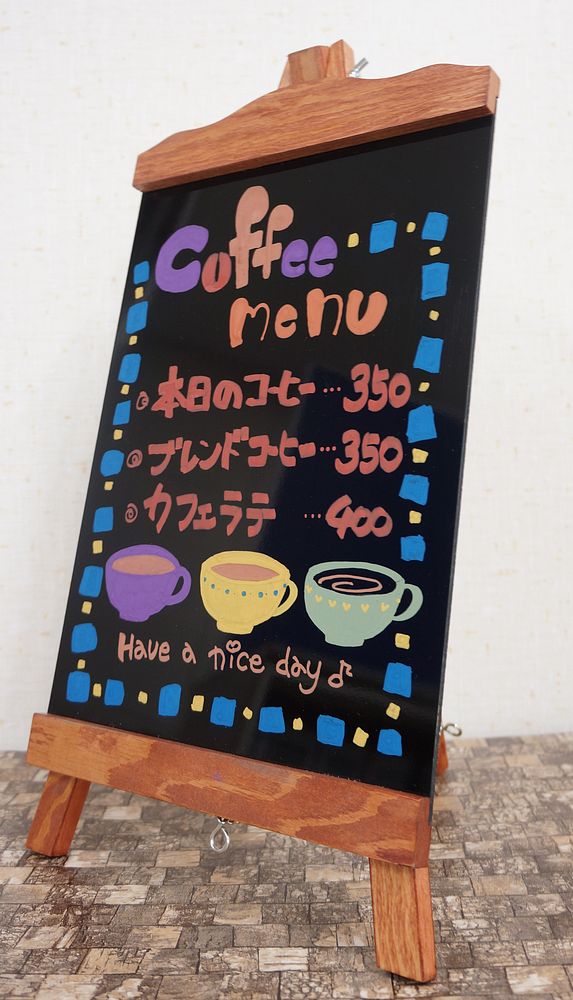 Coffee
menu
◎ 本日のコーヒー…350
◎ ブレンドコーヒー…350
◎ カフェラテ …400
Have a nice day♪